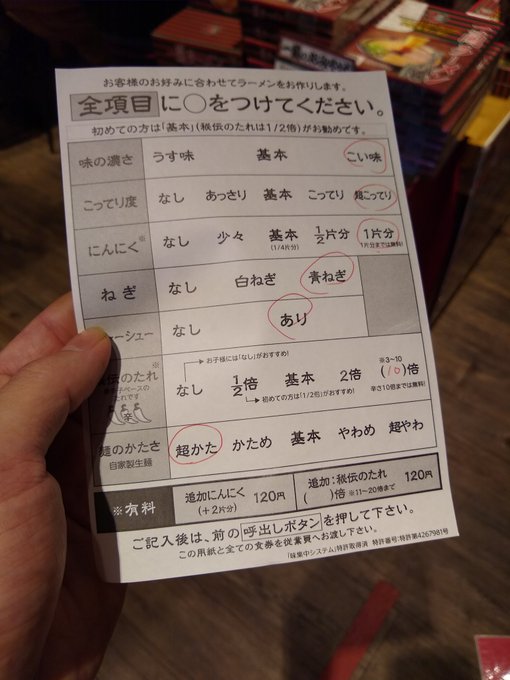 お客様のお好みに合わせてラーメンをお作りします。
全項目に○をつけてください。
初めての方は「基本」(秘伝のたれは1/2倍)がお勧めです。
味の濃さ うす味 基本 こい味
こってり度 なし あっさり 基本 こってり 超こってり
にんにく※ なし 少々 基本 1/2片分 1片分
(1/4片分) 1片分までは無料!
ねぎ なし 白ねぎ 青ねぎ
ーシュー なし あり
お子様には「なし」がおすすめ!
伝のたれ※ なし 1/2倍 基本 2倍 ※3~10 (10)倍
ベースの
たれです
辛
初めての方は「1/2倍」がおすすめ! 辛さ10倍までは無料!
麺のかたさ 超かた かため 基本 やわめ 超やわ
自家製生麺
※有料 追加にんにく (+2片分) 120円 追加:秘伝のたれ ( )倍 ※11~20倍まで 120円
ご記入後は、前の呼出しボタンを押して下さい。
この用紙と全ての食券を従業員へお渡し下さい。
「味集中システム」特許取得済 特許番号:特許第4267981号